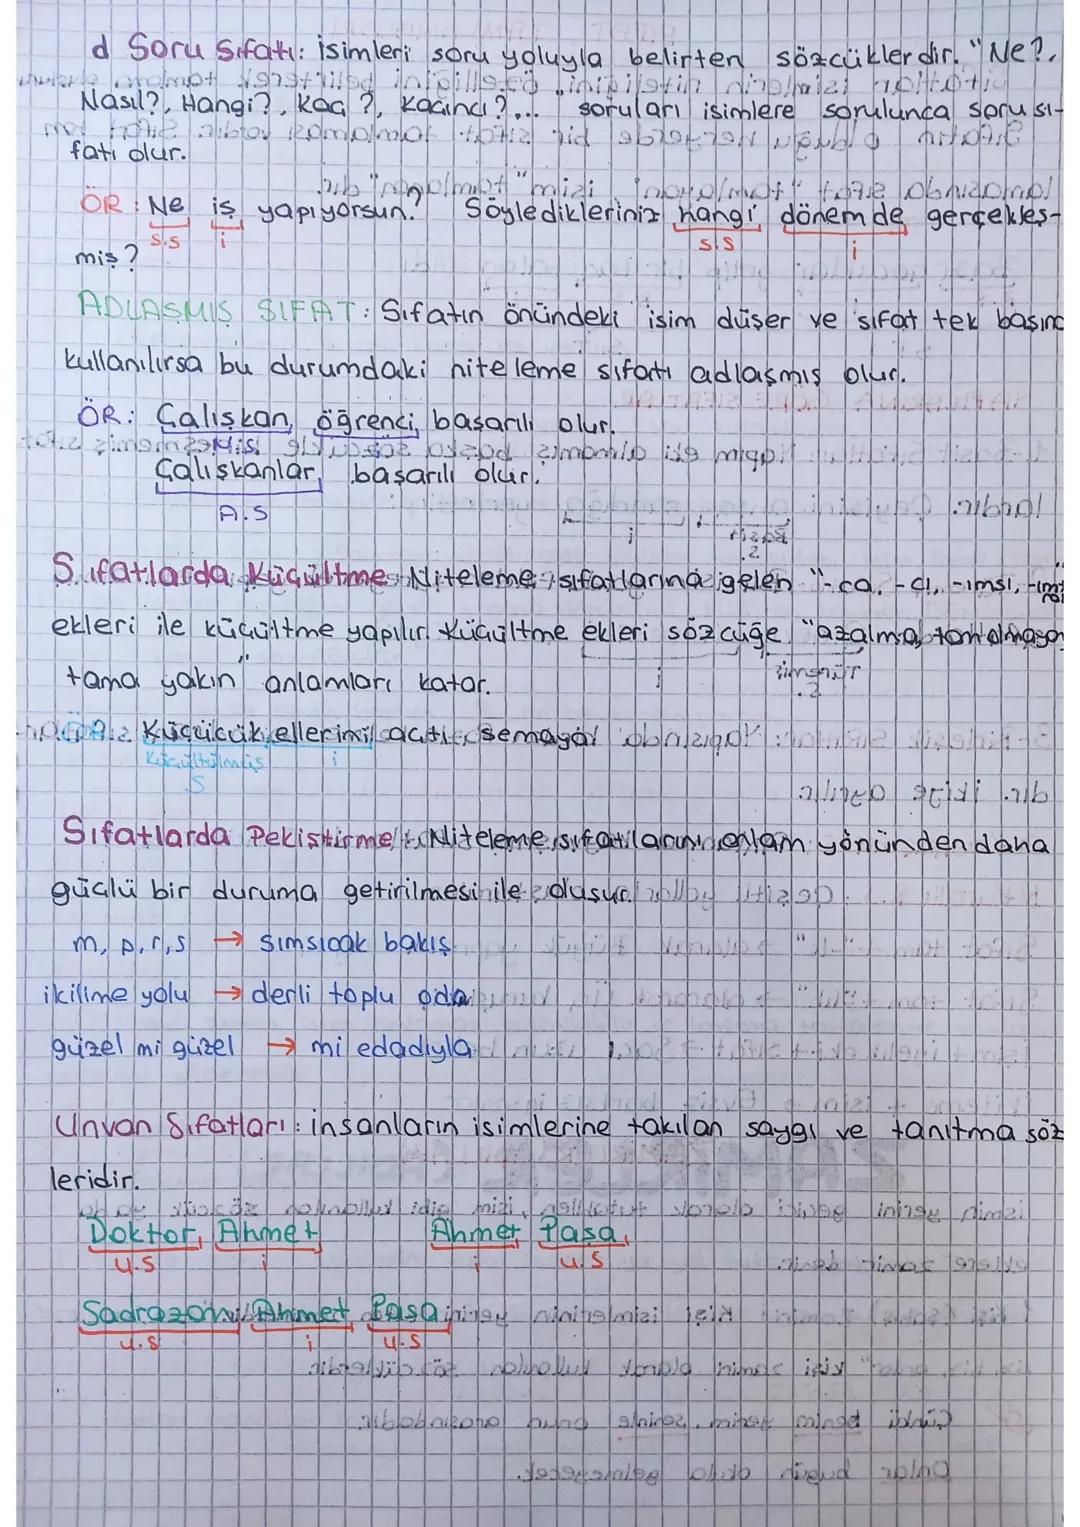 d Soru Sıfatı: İsimleri soru yoluyla belirten sözcüklerdir. "Ne?,
Nasıl?, Hangi?, Kaç?, Kaçıncı?... soruları isimlere sorulunca soru sı-
fatı olur.
ÖR: Ne iş yapıyorsun? Söyledikleriniz hangi dönemde gerçekleş-
s.s i s.s i
miş?
ADLAŞMIŞ SIFAT: Sıfatın önündeki isim düşer ve sıfat tek başına
kullanılırsa bu durumdaki niteleme sıfatı adlaşmış olur.
ÖR: Çalışkan öğrenci başarılı olur.
Çalışkanlar başarılı olur.
A.S
Sıfatlarda Küçültme Niteleme sıfatlarına gelen "-ca, -cı, -ımsı,
ekleri ile küçültme yapılır. Küçültme ekleri sözcüğe "azalma,
tama yakın" anlamları katar.
ÖR: Küçücük ellerini açtı semaya
Küçültülmüş i
S
Sıfatlarda Pekiştirme: Niteleme sıfatlarını anlam yönünden daha
güçlü bir duruma getirilmesi ile oluşur.
m, p, r, s → sımsıcak bakış
ikilime yolu → derli toplu oda
güzel mi güzel → mi edadıyla
Unvan Sıfatları: insanların isimlerine takılan saygı ve tanıtma söz
leridir.
Doktor Ahmet Ahmet Paşa
u.s i i u.s
Sadrazam Ahmet Paşa
u.s i u.s